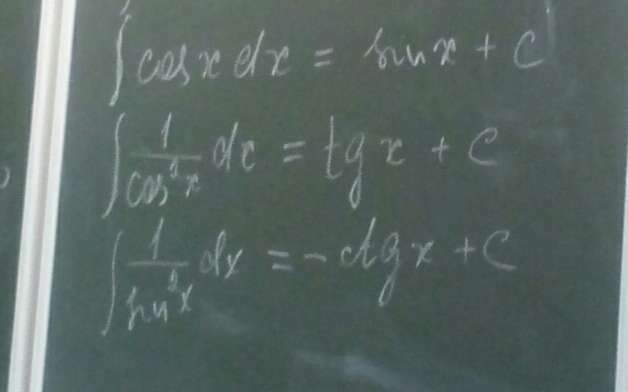 ∫ cos x dx = sin x + C
∫ 1/cos²x dx = tg x + C
∫ 1/sin²x dx = - ctg x + C